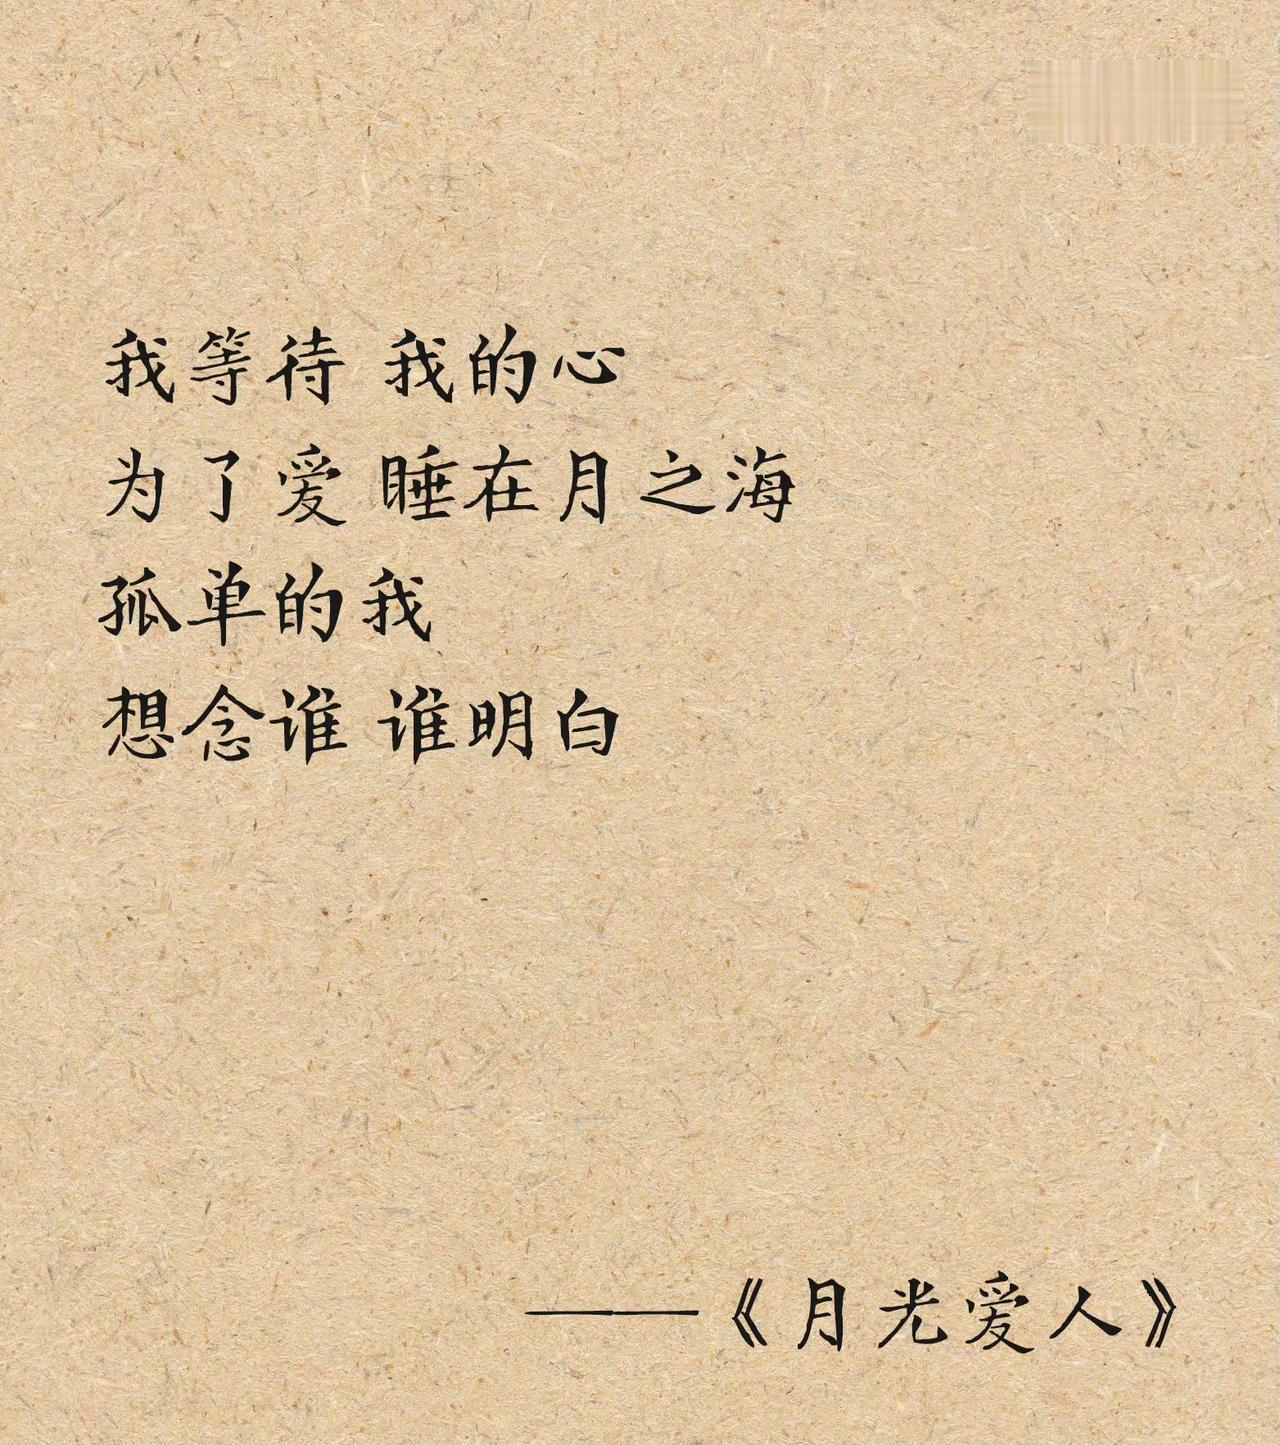 我等待 我的心
为了爱 睡在月之海
孤单的我
想念谁 谁明白
——《月光爱人》